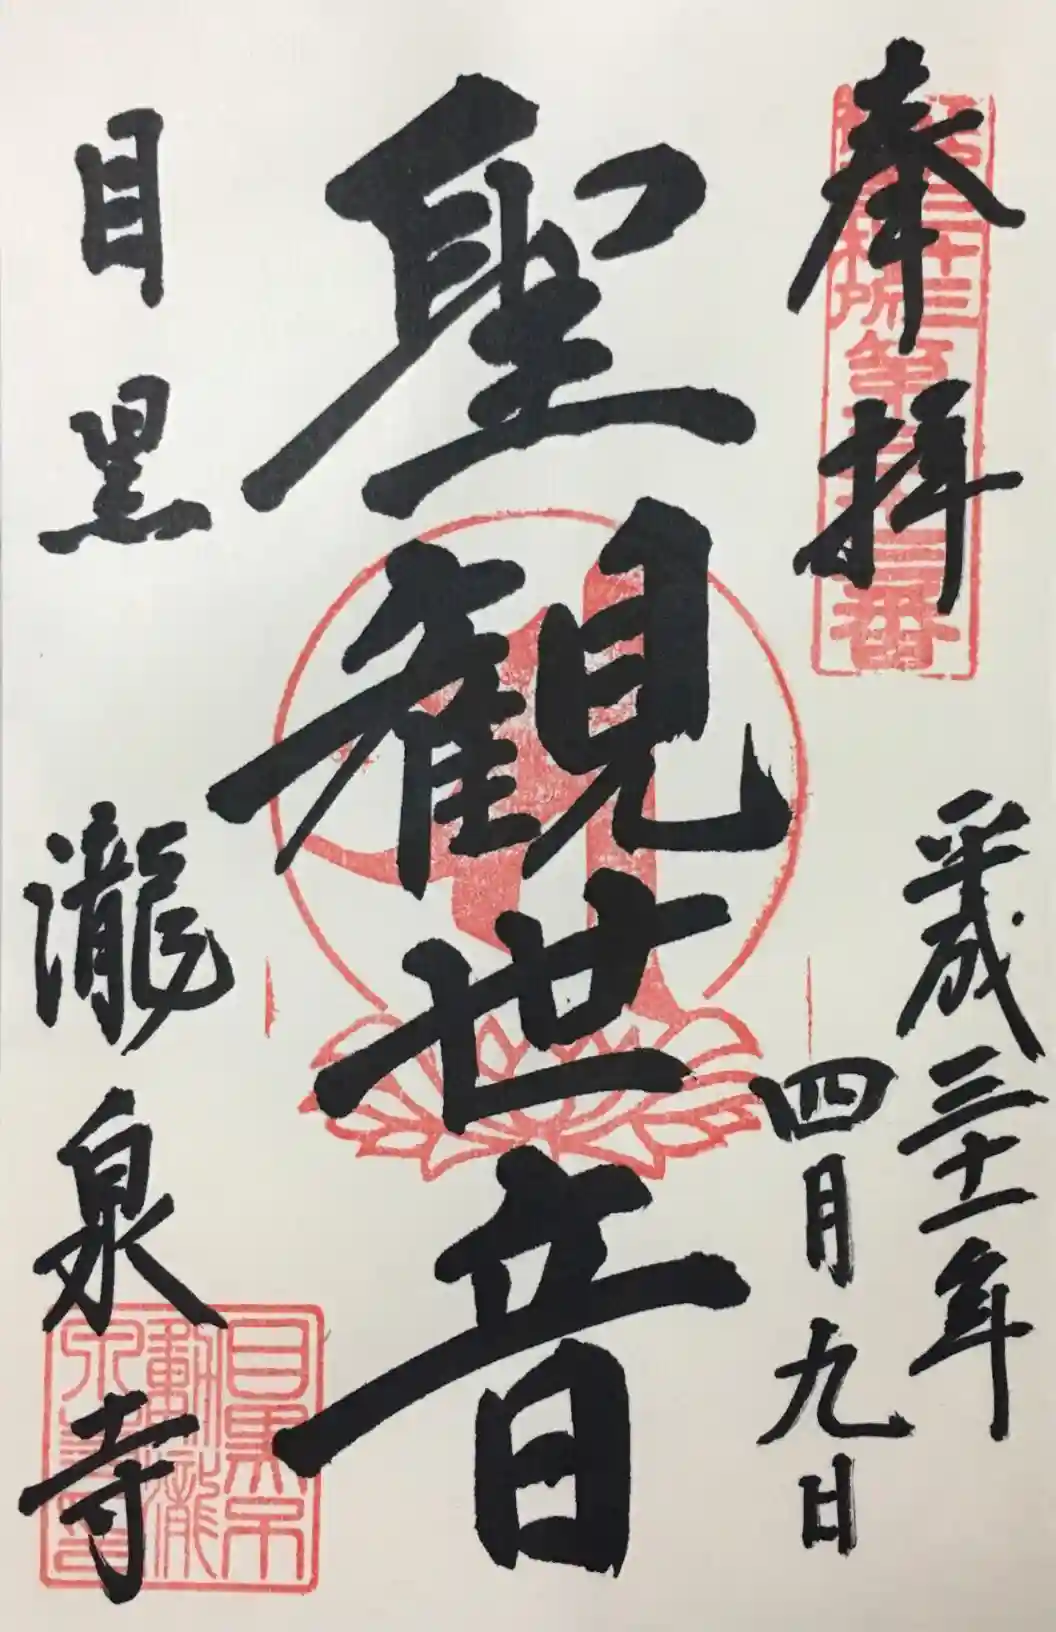 奉拝
第三十三番
平成三十一年
四月九日
聖観世音
目黒 瀧泉寺
目黒不
動瀧